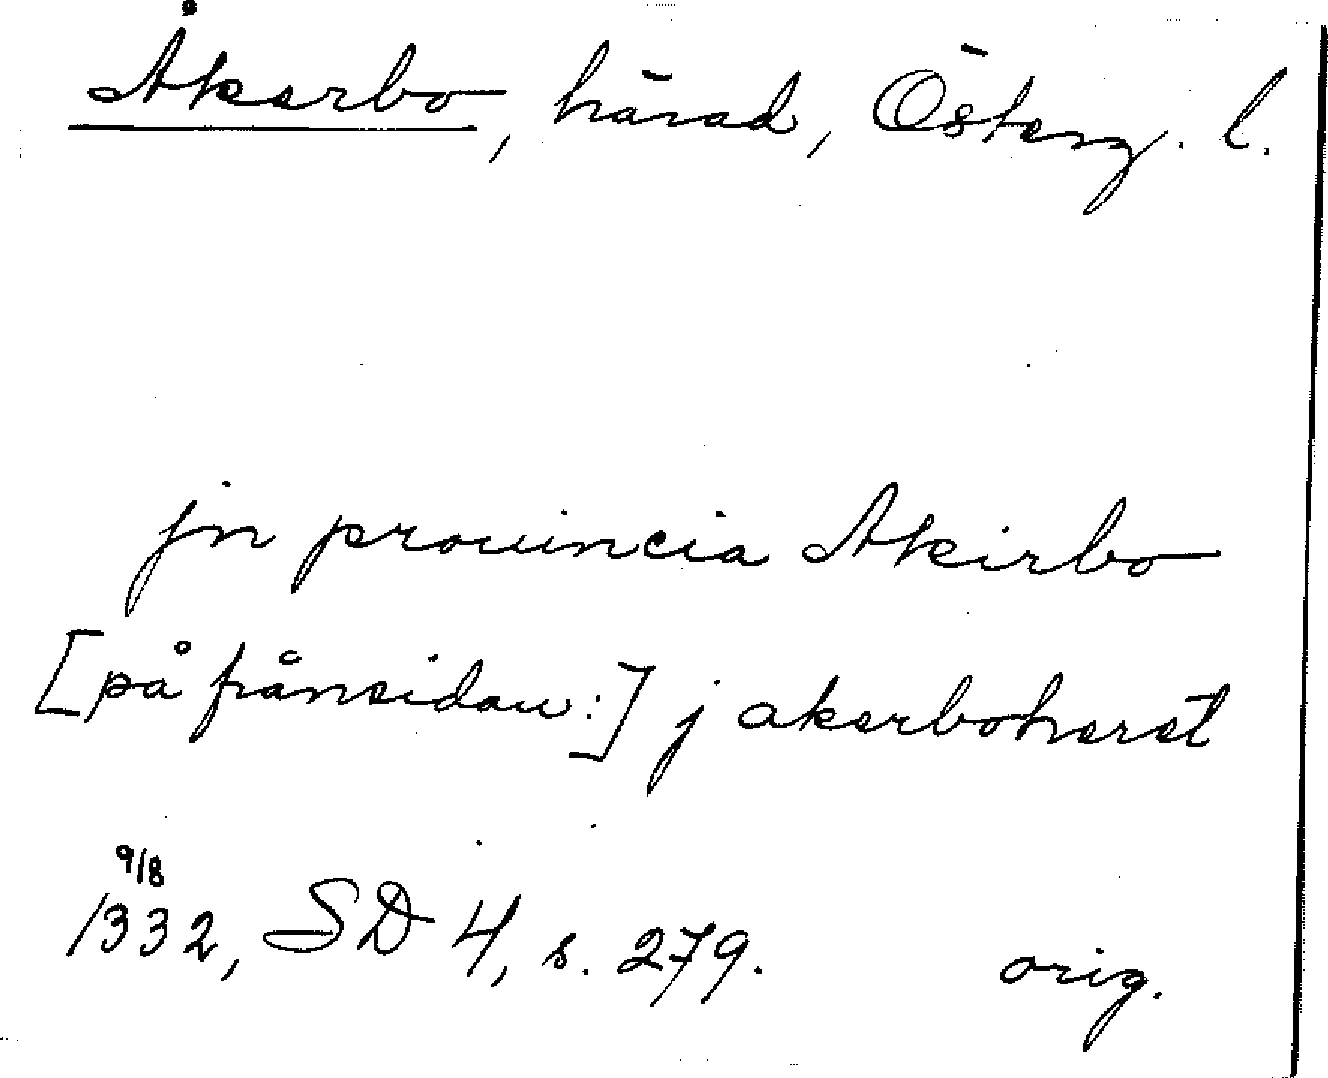 Åkerbo, härad, Österg. l.
jn prouincia Akirbo
[på frånsidan:] j akerboheret
9/8
1332, SD 4, s. 279. orig.